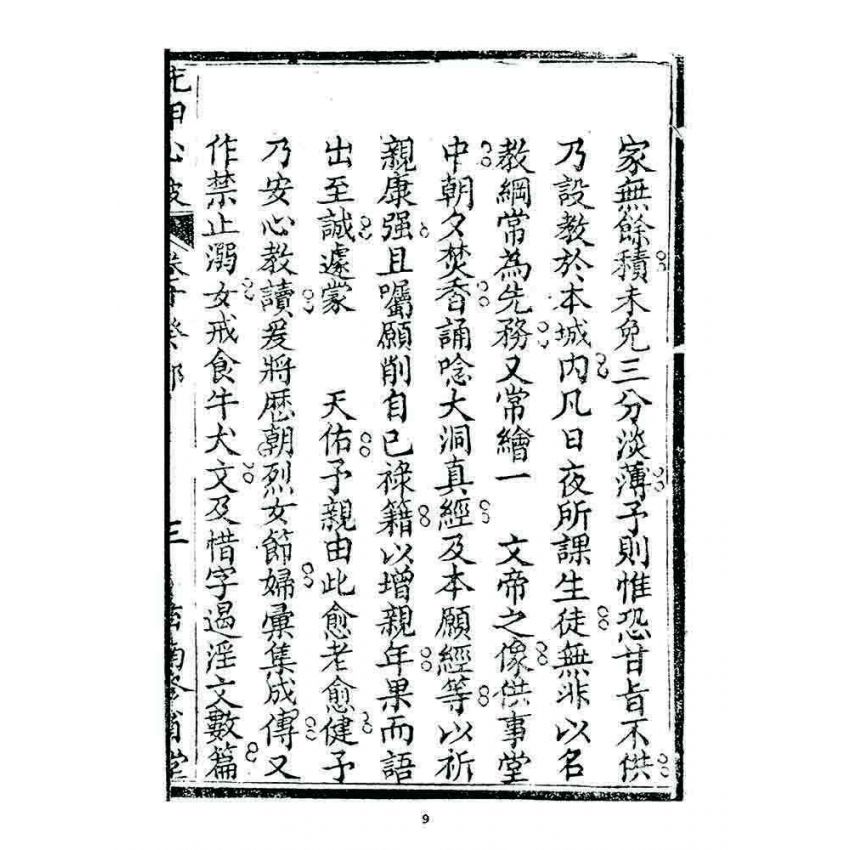 家無餘積未免三分淡薄予則惟恐甘旨不供
乃設教於本城内凡日夜所課生徒無非以名
教綱常為先務又常繪一　文帝之像供事堂
中朝夕焚香誦唸大洞真經及本願經等以祈
親康强且囑願削自己祿籍以增親年果而語
出至誠遽蒙　天佑予親由此愈老愈健予
乃安心教讀爰將歷朝烈女節婦彙集成傳又
作禁止溺女戒食牛犬文及惜字遏淫文數篇
心 癸 三
9